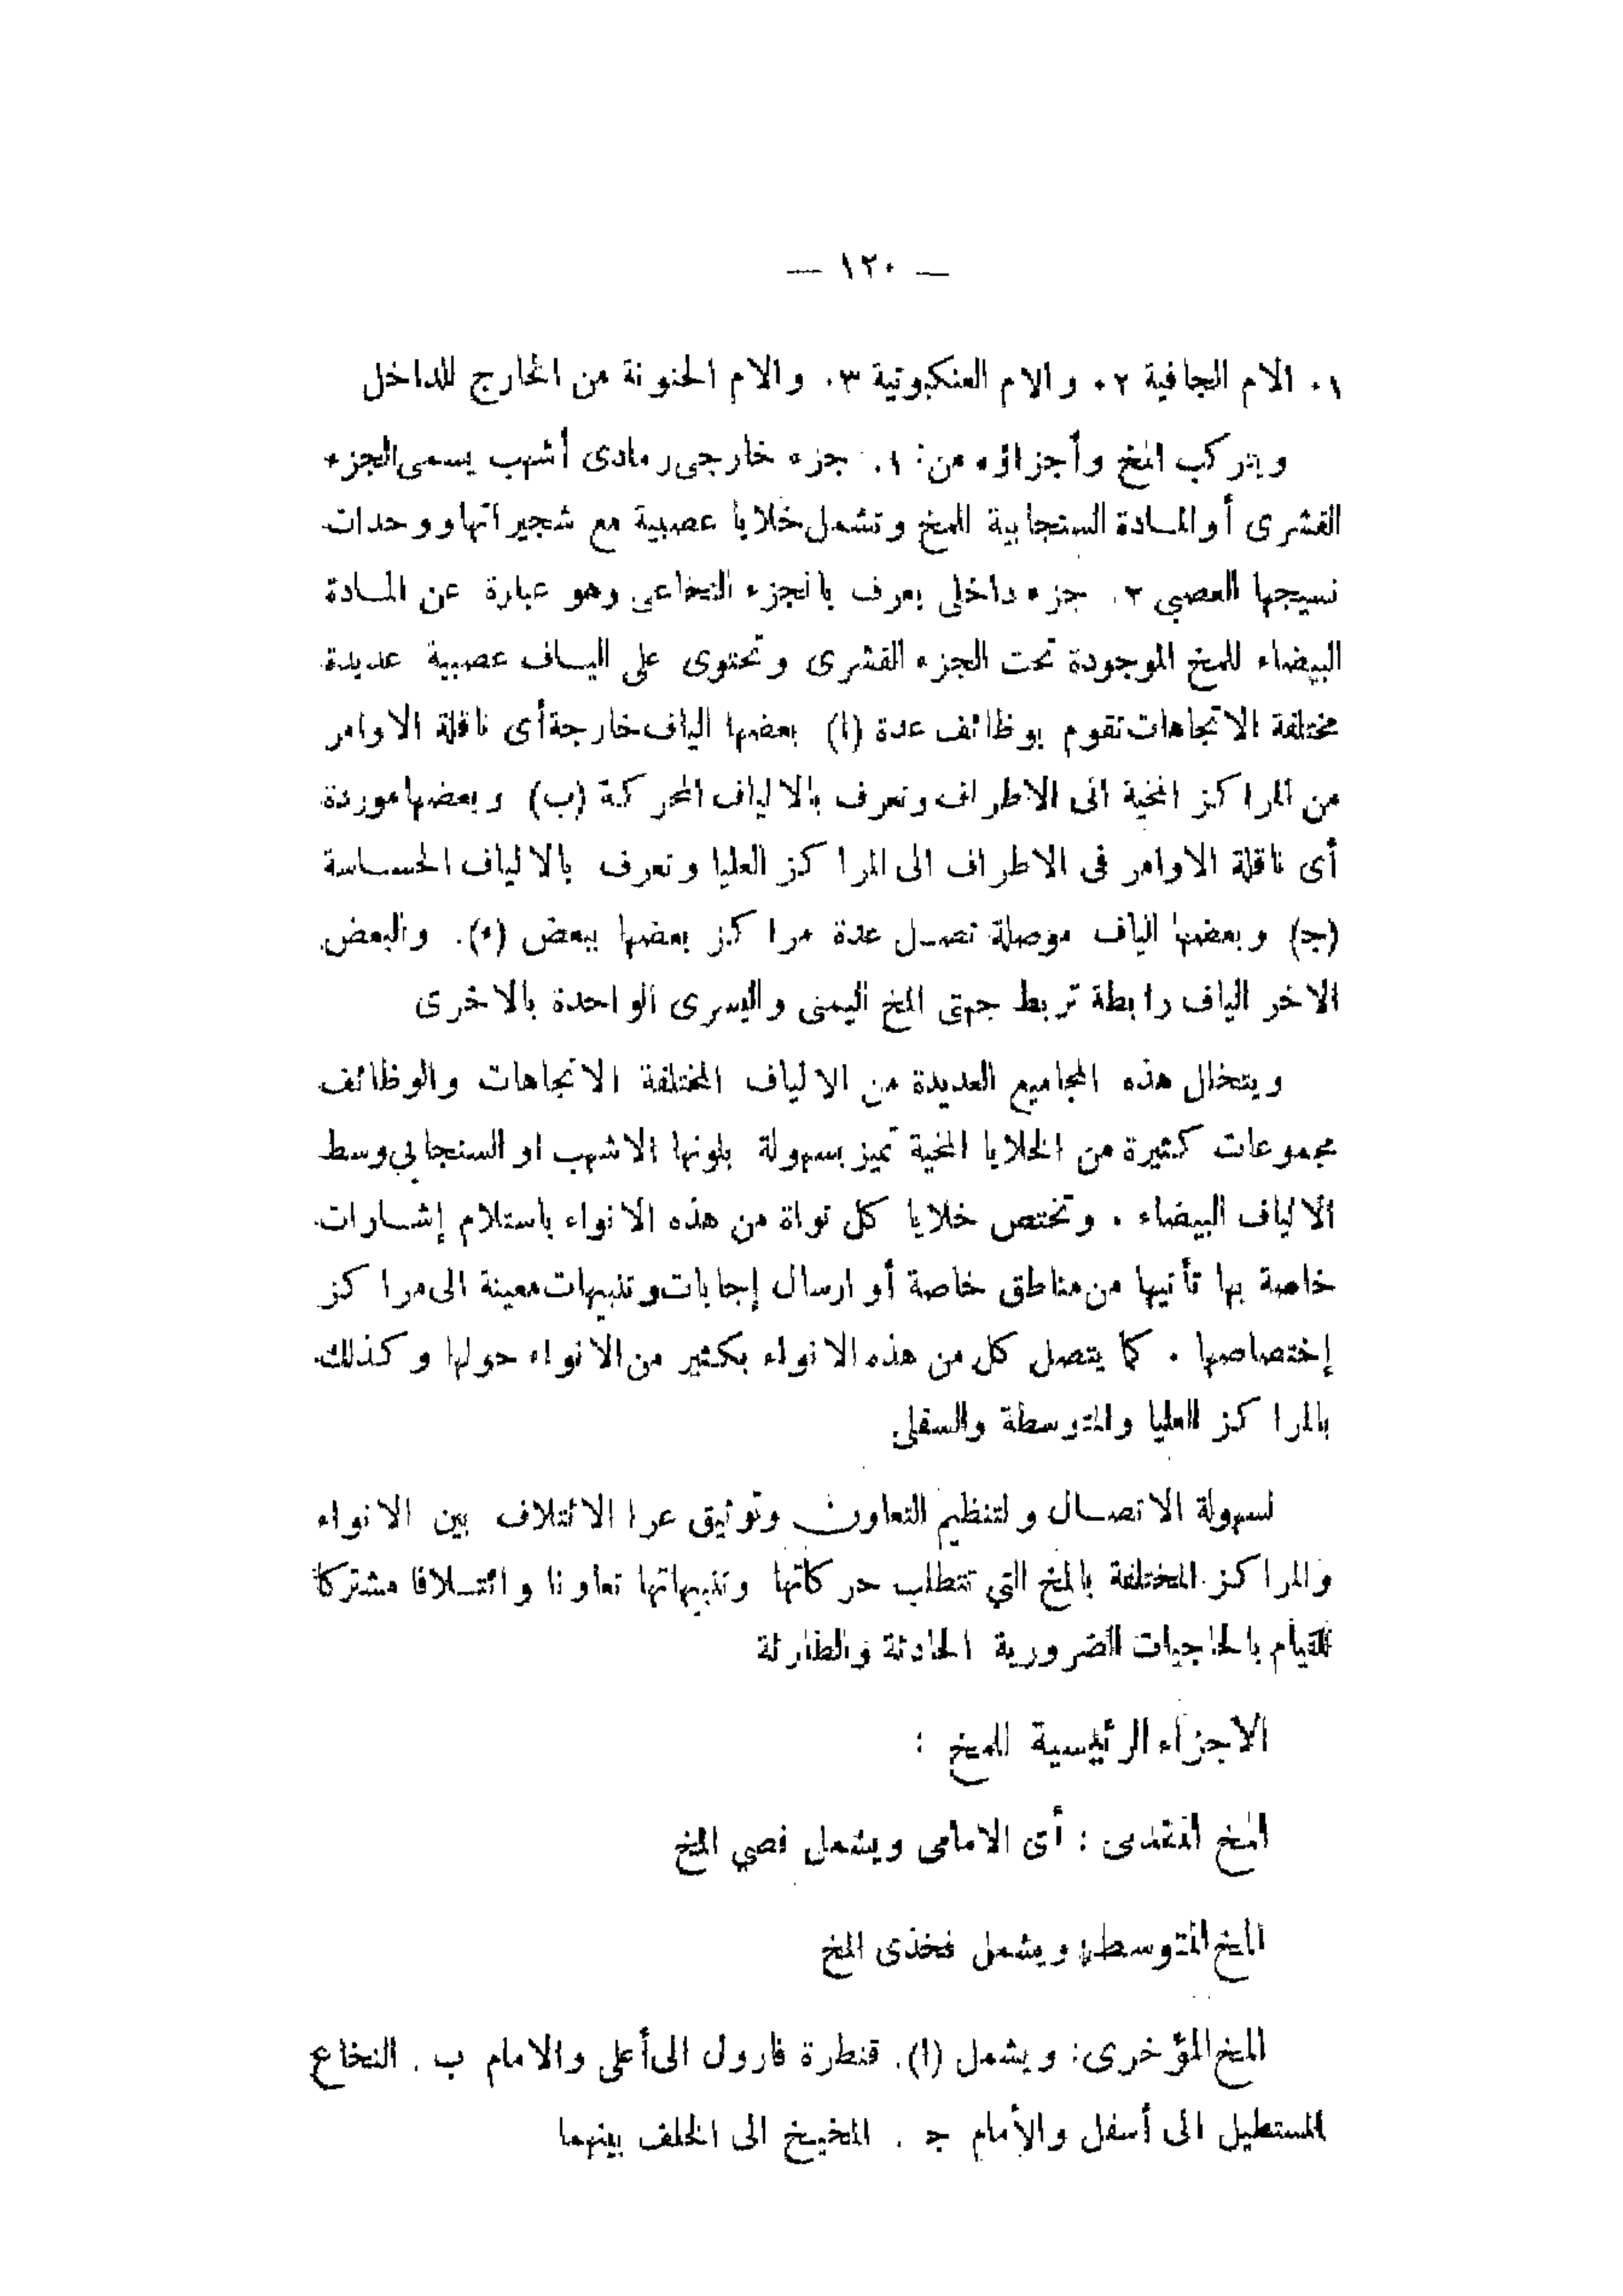 — ١٢٠ —
١. الام الجافية ٢. والام العنكبوتية ٣. والام الحنونة من الخارج للداخل
ويتركب المخ وأجزاؤه من: ١. جزء خارجى رمادى أشهب يسمى الجزء
القشرى أو المادة السنجابية للمخ وتشمل خلايا عصبية مع شجيراتها ووحدات
نسيجها العصبي ٢. جزء داخلى يعرف بالجزء النخاعى وهو عبارة عن المادة
البيضاء للمخ الموجودة تحت الجزء القشرى وتحتوى على الياف عصبية عديدة
مختلفة الاتجاهات تقوم بوظائف عدة (ا) بعضها الياف خارجة أى ناقلة الاوامر
من المراكز المخية الى الاطراف وتعرف بالالياف المحركة (ب) وبعضها موردة
أى ناقلة الاوامر فى الاطراف الى المراكز العليا وتعرف بالالياف الحساسة
(ج) وبعضها الياف موصلة تصل عدة مراكز بعضها ببعض (ء). والبعض
الاخر الياف رابطة تربط جهتى المخ اليمنى واليسرى الواحدة بالاخرى
ويتخلل هذه المجاميع العديدة من الالياف المختلفة الاتجاهات والوظائف
مجموعات كثيرة من الخلايا المخية تميز بسهولة بلونها الاشهب او السنجابي وسط
الالياف البيضاء . وتختص خلايا كل نواة من هذه الانواء باستلام إشارات
خاصة بها تأتيها من مناطق خاصة أو ارسال إجابات وتنبيهات معينة الى مراكز
إختصاصها . كما يتصل كل من هذه الانواء بكثير من الانواء حولها وكذلك
بالمراكز العليا والمتوسطة والسفلى
لسهولة الاتصال ولتنظيم التعاون وتوثيق عرا الائتلاف بين الانواء
والمراكز المختلفة بالمخ التي تتطلب حركاتها وتنبيهاتها تعاونا وائتلافا مشتركا
للقيام بالحاجيات الضرورية الحادثة والطارئة
الاجزاء الرئيسية للمخ :
المخ المقدمى : أى الامامى ويشمل فصي المخ
المخ المتوسط: ويشمل فخذى المخ
المخ المؤخرى: ويشمل (ا). قنطرة فارول الى أعلى والامام ب . النخاع
المستطيل الى أسفل والأمام ج . المخيخ الى الخلف بينهما